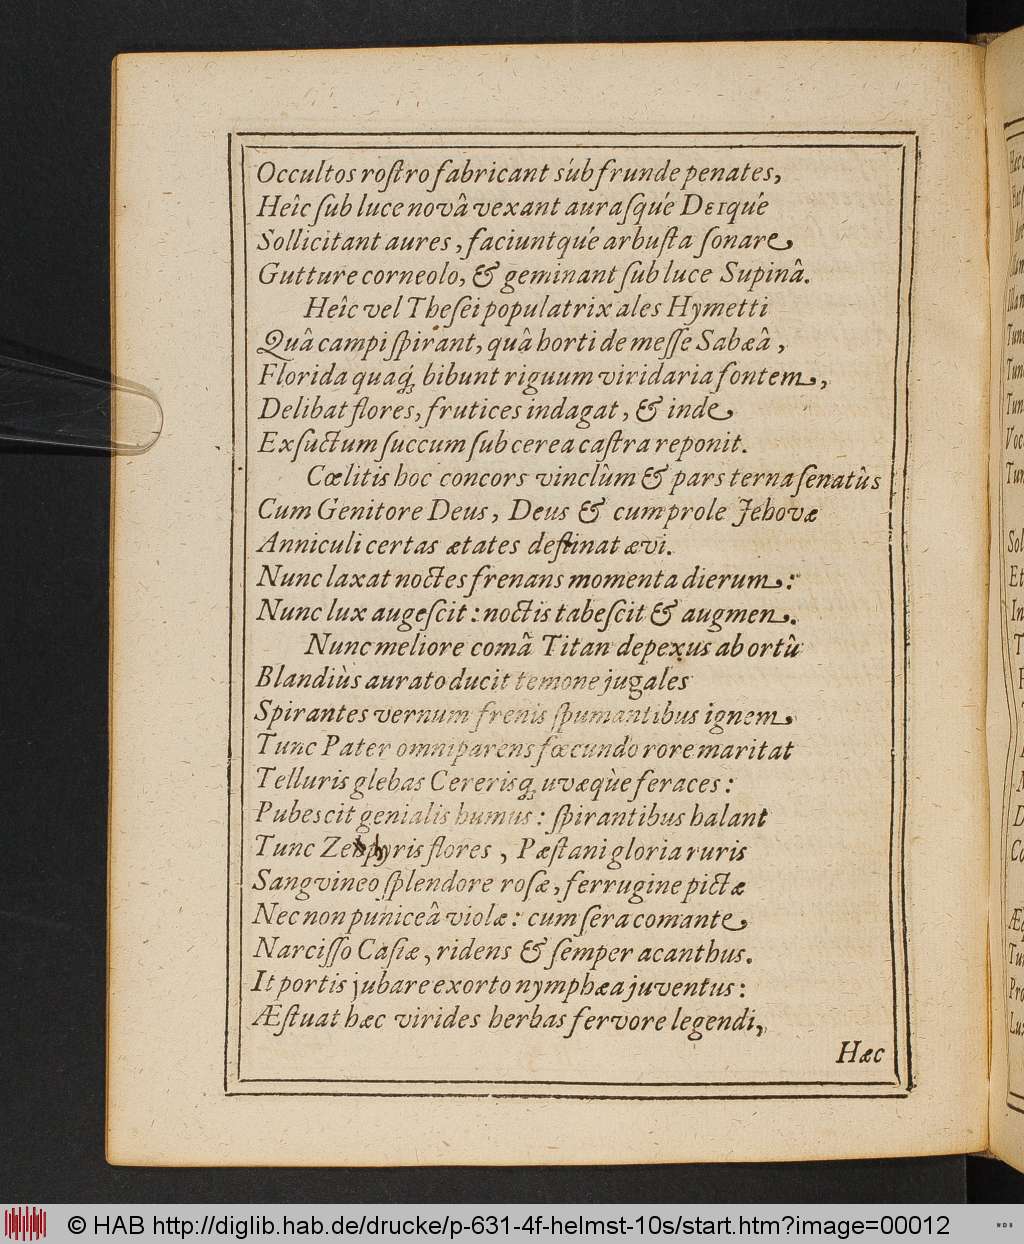 Occultos rostro fabricant súb frunde penates,
Heîc sub luce novâ vexant aurasqué Deiqué
Sollicitant aures, faciuntqué arbusta sonare
Gutture corneolo, & geminant sub luce Supinâ.
Heîc vel Thesei populatrix ales Hymetti
Quâ campi spirant, quâ horti de messe Sabæâ,
Florida quaq́; bibunt riguum viridaria fontem,
Delibat flores, frutices indagat, & inde
Exsuctum succum sub cerea castra reponit.
Cœlitis hoc concors vinclûm & pars terna senatûs
Cum Genitore Deus, Deus & cum prole Jehovæ
Anniculi certas ætates destinat ævi.
Nunc laxat noctes frenans momenta dierum:
Nunc lux augescit: noctis tabescit & augmen.
Nunc meliore comã Titan depexus ab ortû
Blandiùs aurato ducit temone jugales
Spirantes vernum frenis spumantibus ignem,
Tunc Pater omniparens fœcundo rore maritat
Telluris glebas Cererisq́; uvæq̀ue feraces:
Pubescit genialis humus: spirantibus halant
Tunc Zephyris flores, Pæstani gloria ruris
Sangvineo splendore rosæ, ferrugine pictæ
Nec non puniceâ violæ: cum sera comante
Narcisso Casiæ, ridens & semper acanthus.
It portis jubare exorto nymphæa juventus:
Æstuat hæc virides herbas fervore legendi,
Hæc
© HAB http://diglib.hab.de/drucke/p-631-4f-helmst-10s/start.htm?image=00012